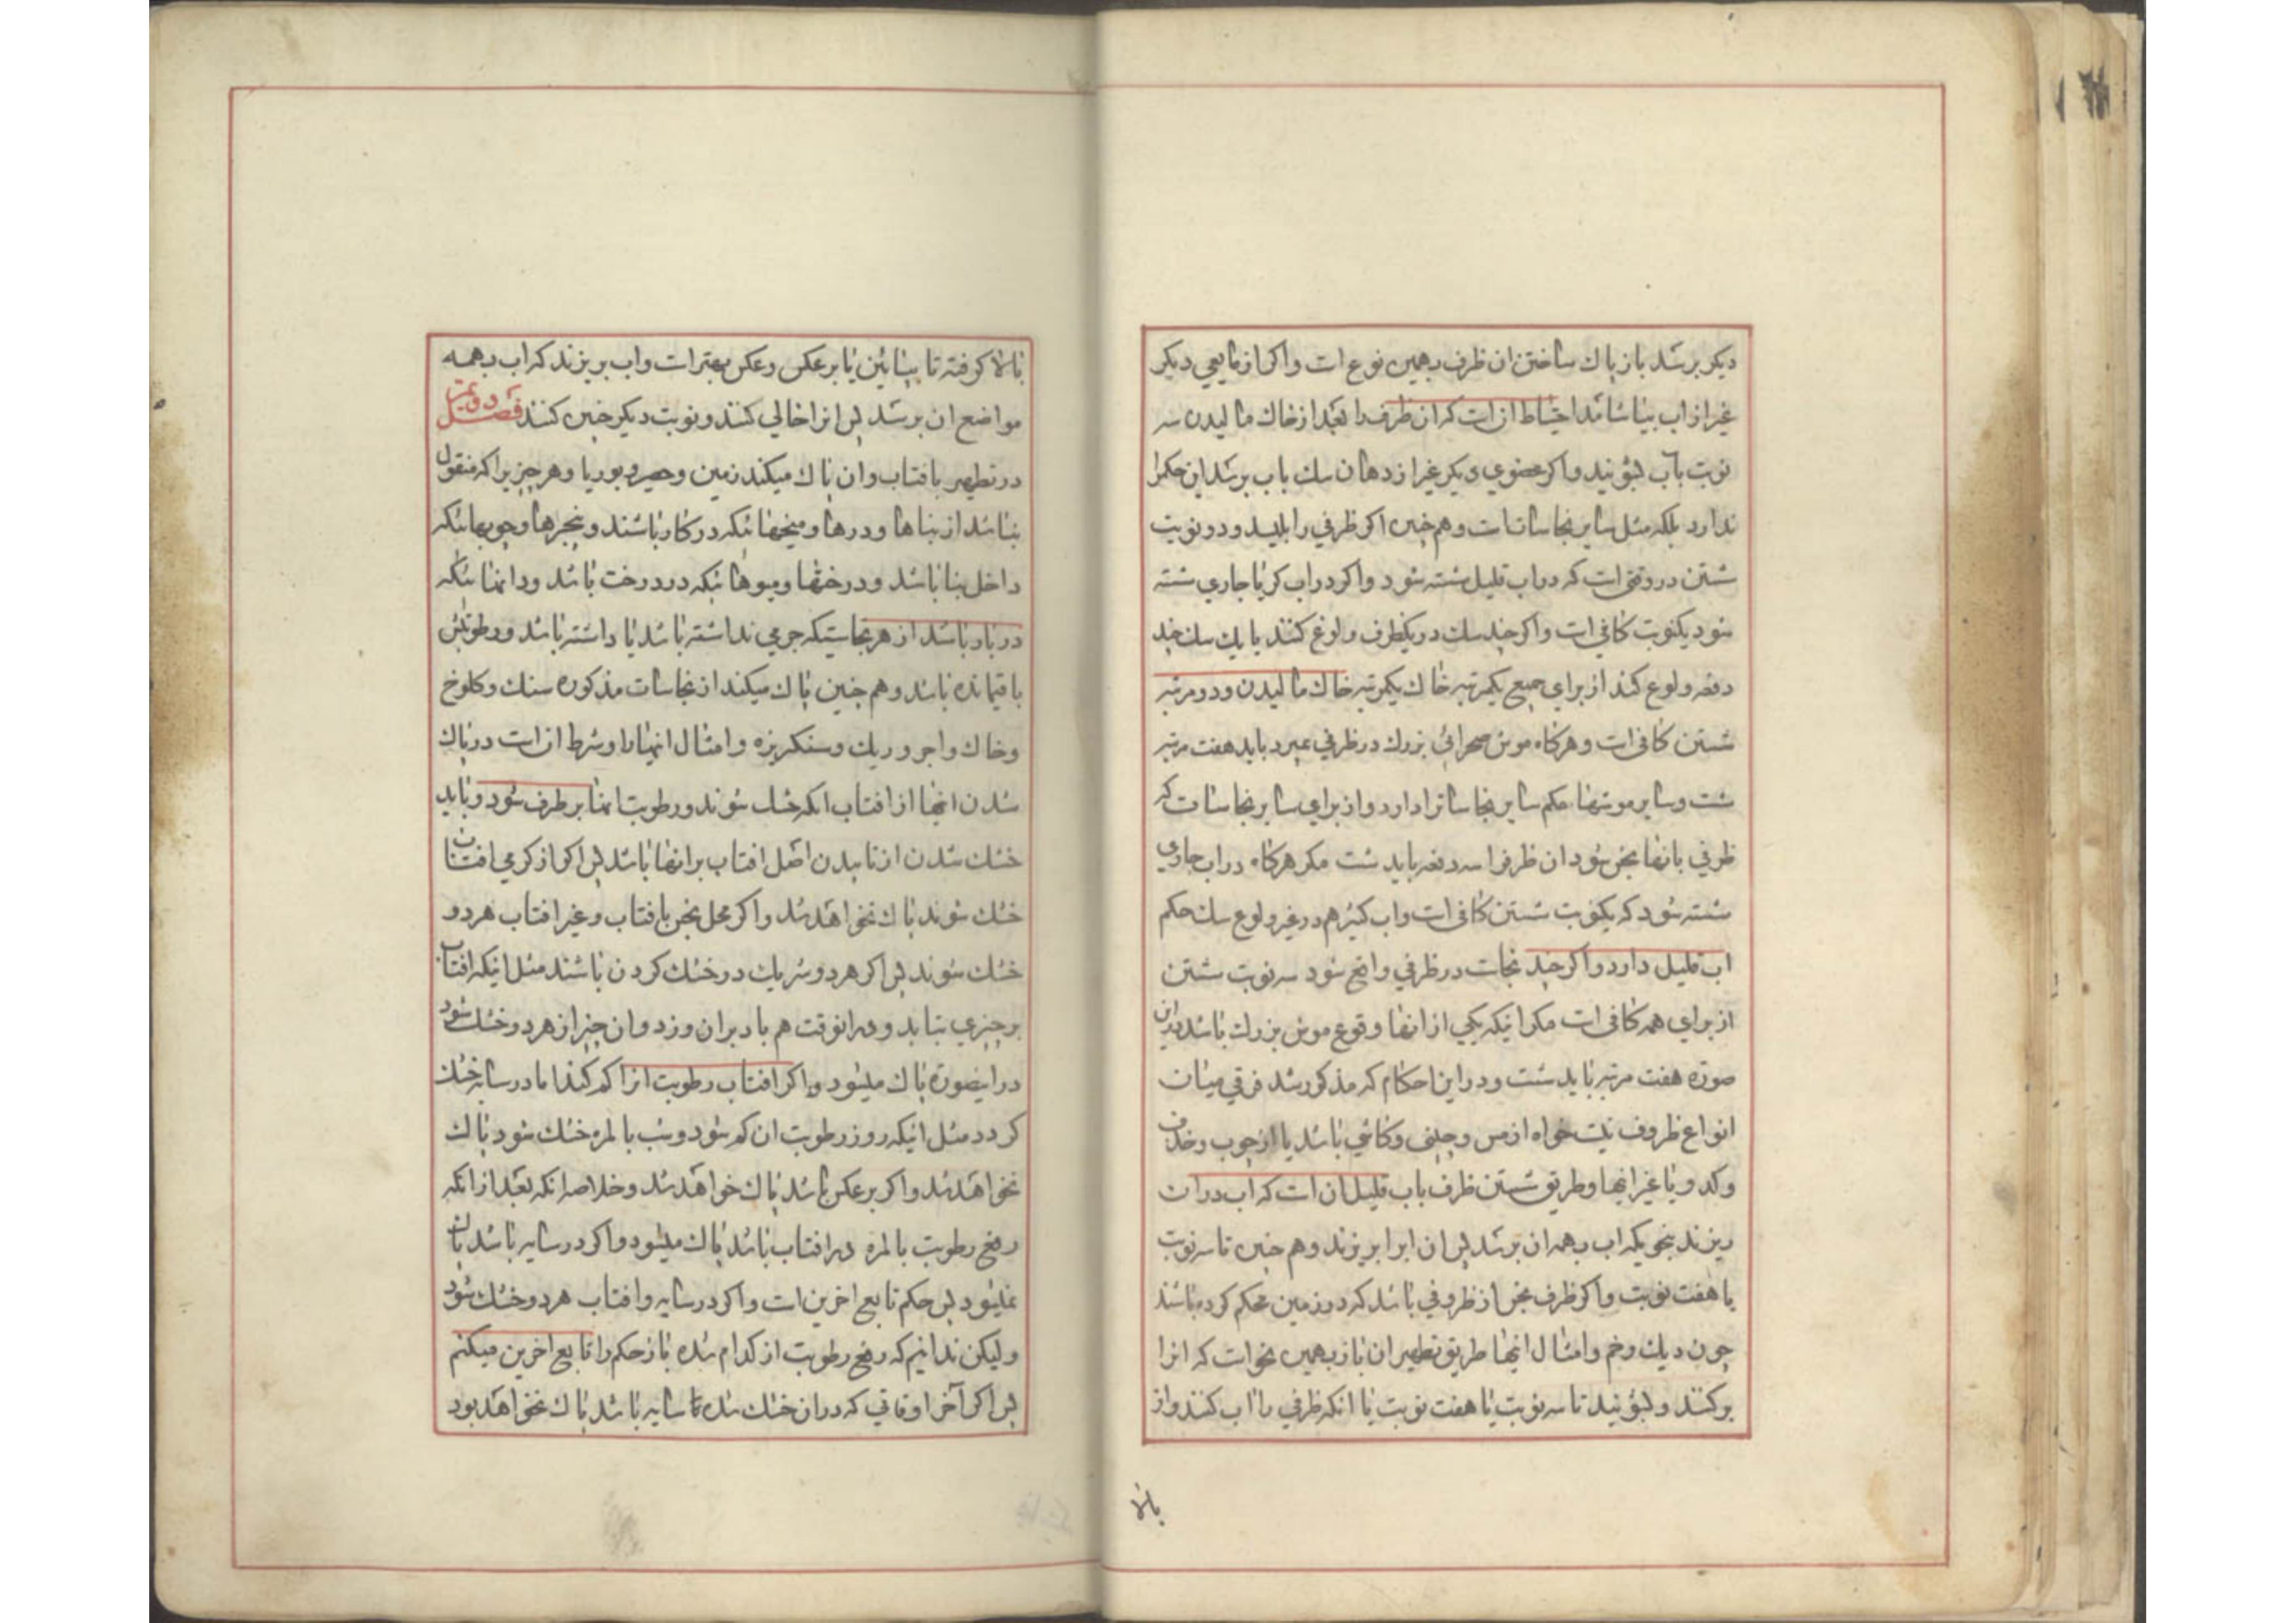 دیکر برسد باز پاك ساختن ان ظرف بهمین نوع است واکر از مایعی دیکر
غیر از اب بیاشامد احتیاط ان است که ان ظرف را بعد از خاك مالیدن سه
نوبت باب بشویند واکر عضوی دیکر غیر از دهان سك باب برسد این حکم را
ندارد بلکه مثل سایر نجاسات است وهم چنین اکر ظرفی را بلیسد ودو نوبت
شستن در وقتی است که در اب قلیل شسته شود واکر در اب کر یا جاری شسته
شود یکنوبت کافی است واکر چند سك در یکظرف ولوغ کنند یا یك سك چند
دفعه ولوع کند از برای جمیع یکمرتبه خاك یکمرتبه خاك مالیدن ودو مرتبه
شستن کافی است وهرکاه موش صحرائی بزرك در ظرفی بمیرد باید هفت مرتبه
شست وسایر موشها حکم سایر نجاسات را دارد واز برای سایر نجاسات که
ظرفی بانها نجس شود ان ظرف را سه دفعه باید شست مکر هرکاه در اب جاری
شسته شود که یکنوبت شستن کافی است واب کثیر هم در غیر ولوع سك حکم
اب قلیل دارد واکر چند نجاست در ظرفی واقع شود سه نوبت شستن
از برای همه کافی است مکر اینکه یکی از انها وقوع موش بزرك باشد در این
صورة هفت مرتبه باید شست ودر این احکام که مذکور شد فرقی میان
انواع ظروف نیست خواه از مس وچینی وکاشی باشد یا از چوب وخذف
وکدو یا غیر اینها وطریق شستن ظرف باب قلیل ان است که اب در ان
ریزند بنحویکه اب بهمه ان برسد پس ان ابرا بریزند وهم چنین تا سه نوبت
یا هفت نوبت واکر ظرف نجس از ظروفی باشد که در زمین محکم کرده باشند
چون دیك وخم وامثال اینها طریق تطهیر ان باز بهمین نحو است که انرا
پر کنند وبشویند تا سه نوبت یا هفت نوبت یا انکه ظرفی را اب کنند واز
بالا
بالا کرفته تا بپائین یا برعکس وعکس بهتر است واب بریزند که اب بهمه
مواضع ان برسد پس انرا خالی کنند ونوبت دیکر چنین کنند فصل دویم
در تطهیر بافتاب وان پاك میکند زمین وحصیر وبوریا وهر چیزیرا که منقول
نباشد از بناها ودرها ومیخهائیکه در کار باشند وپنجرها وچوبهائیکه
داخل بنا باشد ودرختها ومیوهائیکه در درخت باشد ودانهائیکه
در بار باشد از هر نجاستیکه جرمی نداشته باشد یا داشته باشد ورطوبتش
باقیمانده باشد وهم چنین پاك میکند از نجاسات مذکوره سنك وکلوخ
وخاك واجر وریك وسنکریزه وامثال اینها را وشرط ان است در پاك
شدن اینها از افتاب انکه خشك شوند ورطوبت انها برطرف شود وباید
خشك شدن از تابیدن اصل افتاب بر انها باشد پس اکر از کرمی افتاب
خشك شوند پاك نخواهد شد واکر محل نجس بافتاب وغیر افتاب هر دو
خشك شوند پس اکر هر دو شریك در خشك کردن باشند مثل اینکه افتاب
بر چیزی بتابد ودر انوقت هم باد بر ان وزد وان چیز از هر دو خشك شود
در اینصورة پاك میشود واکر افتاب رطوبت انرا کم کند اما در سایه خشك
کردد مثل اینکه روز رطوبت ان کم شود وشب بالمره خشك شود پاك
نخواهد شد واکر برعکس باشد پاك خواهد شد وخلاصه انکه بعد از انکه
رفع رطوبت بالمره در افتاب باشد پاك میشود واکر در سایه باشد پاك
نمیشود پس حکم تابع اخرین است واکر در سایه وافتاب هر دو خشك شود
ولیکن ندانیم که رفع رطوبت از کدام شده باز حکم را تابع اخرین میکنم
پس اکر آخر اوقاتی که در ان خشك شده تا سایه باشد پاك نخواهد بود